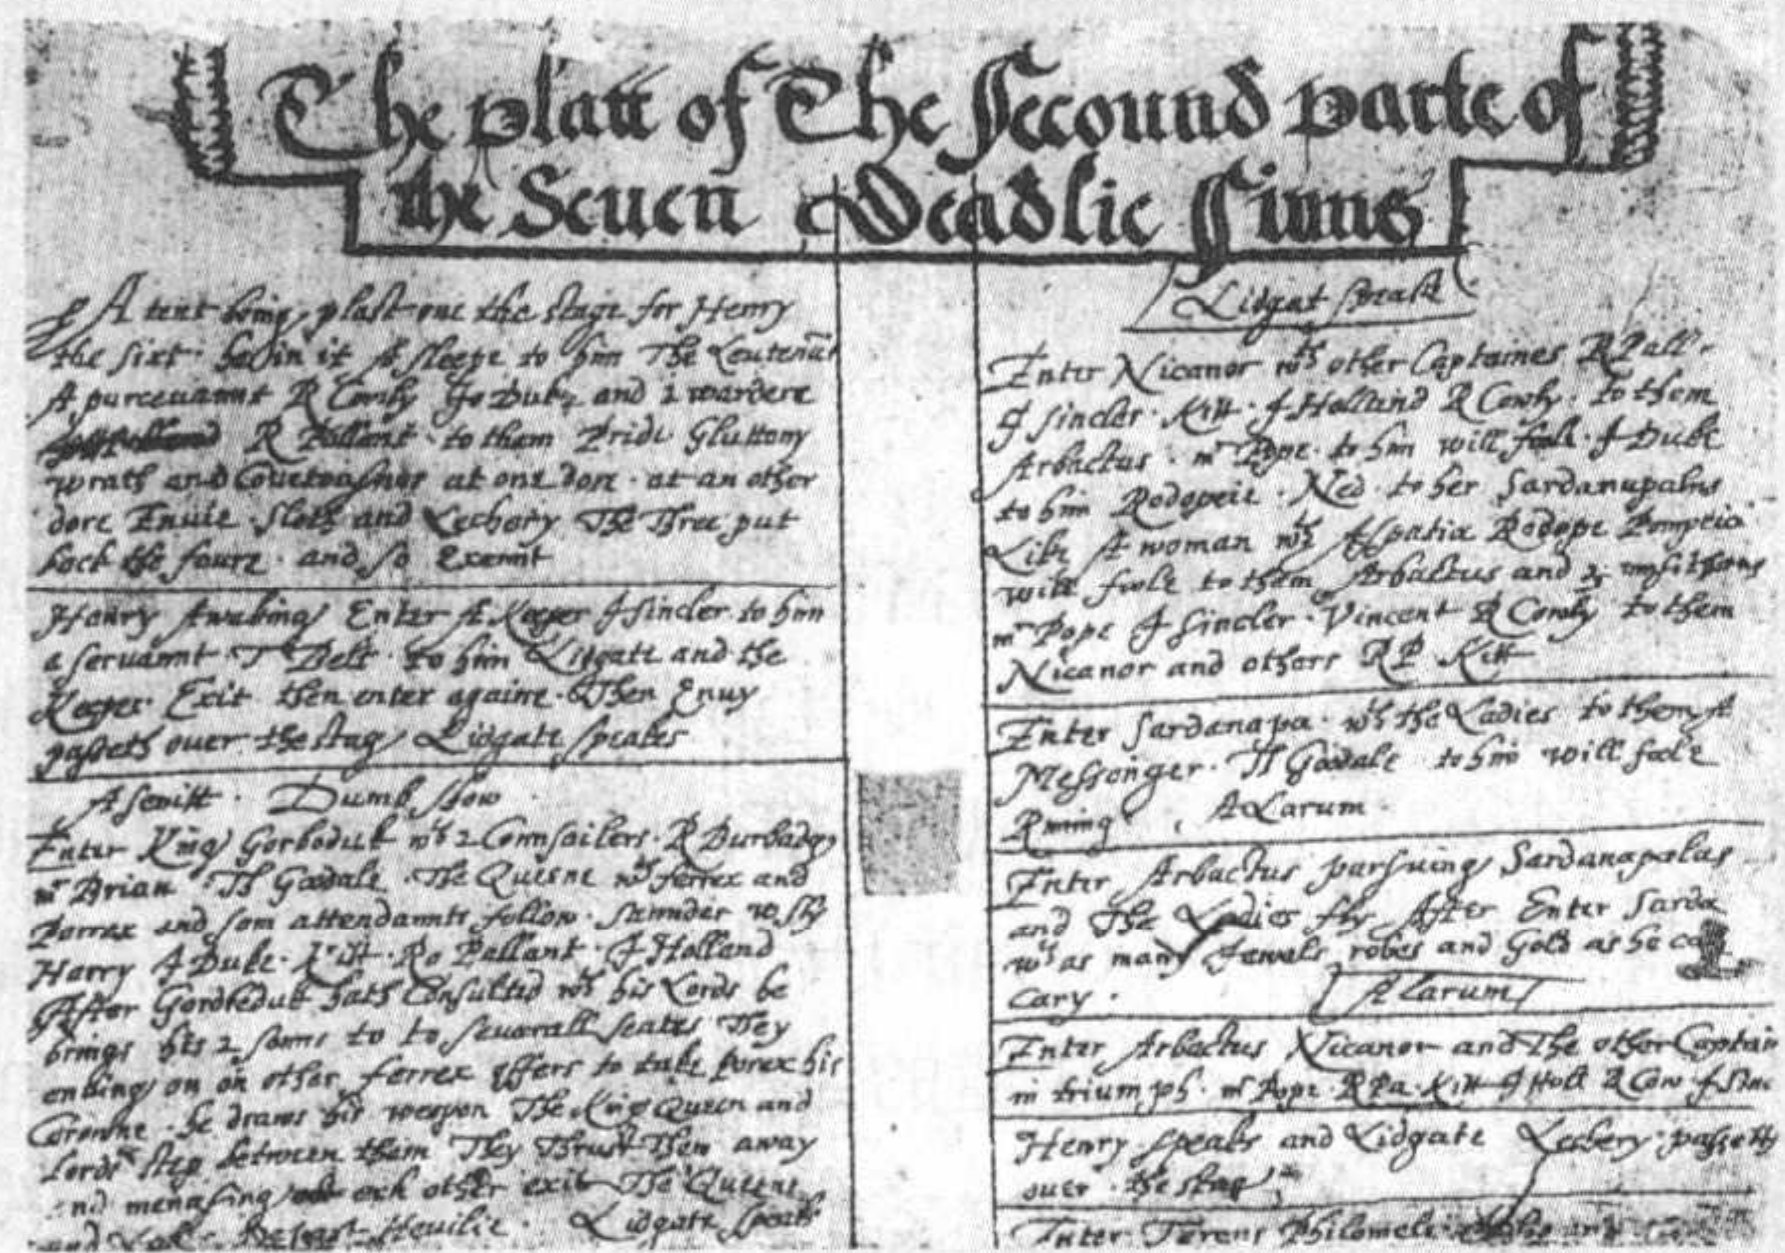 The platt of The Secound parte of
the Seuen Deadlie Sinns
A tent being plast one the stage for Henry
the sixt he in it A sleepe to him The Leutenāt
A purceuaunt R Cowly Jo Duke and i wardere
R Pallant to them Pride Gluttony
wrath and Couetousnes at one dore at an other
dore Enuie Sloth and Lechery The Three put
back the foure and so Exeunt
Henry Awaking Enter A Keeper J Sincler to him
a seruaunt T Belt to him Lidgate and the
Keeper Exit then enter againe Then Enuy
passeth ouer the stag Lidgate speakes
A senitt Dumb show
Enter King Gorboduk wth 2 Counsailers R Burbadg
mr Brian Th Goodale The Queene wth ferrex and
Porrex and som attendaunts follow saunder w sly
Harry J Duke Kitt Ro Pallant J Holland
After Gordbeduk hath Consulted wth his Lords he
brings his 2 sonns to to seuerall seates They
enuing on on other ferrex offers to take Porex his
Corowne he draws his weopon The King Queen and
Lords step between them They Thrust Them away
and menasing ech other exit The Queene
and Depart Heuilie Lidgate speaks
Lidgat speake
Enter Nicanor wth other Captaines R Pall
J sincler Kitt J Holland R Cowly to them
Arbactus mr Pope to him will foole J Duke
to him Rodopeie Ned to her Sardanapalus
Like A woman wth Aspatia Rodope Pompeia
will foole to them Arbactus and 3 musitions
mr Pope J Sincler Vincent R Cowly to them
Nicanor and others R P Kitt
Enter Sardanapa wth the Ladies to them A
Messenger Th Goodale to him will foole
Runing A Larum
Enter Arbactus pursuing Sardanapalus
and The Ladies fly After Enter Sarda
wth as many Jewels robes and Gold as he ca
cary
A larum
Enter Arbactus Nicanor and The other Captains
in triumph mr Pope R Pa Kitt J Holl R Cow J Sinc
Henry speaks and Lidgate Lechery passeth
ouer the stag
Enter Tereus Philomele